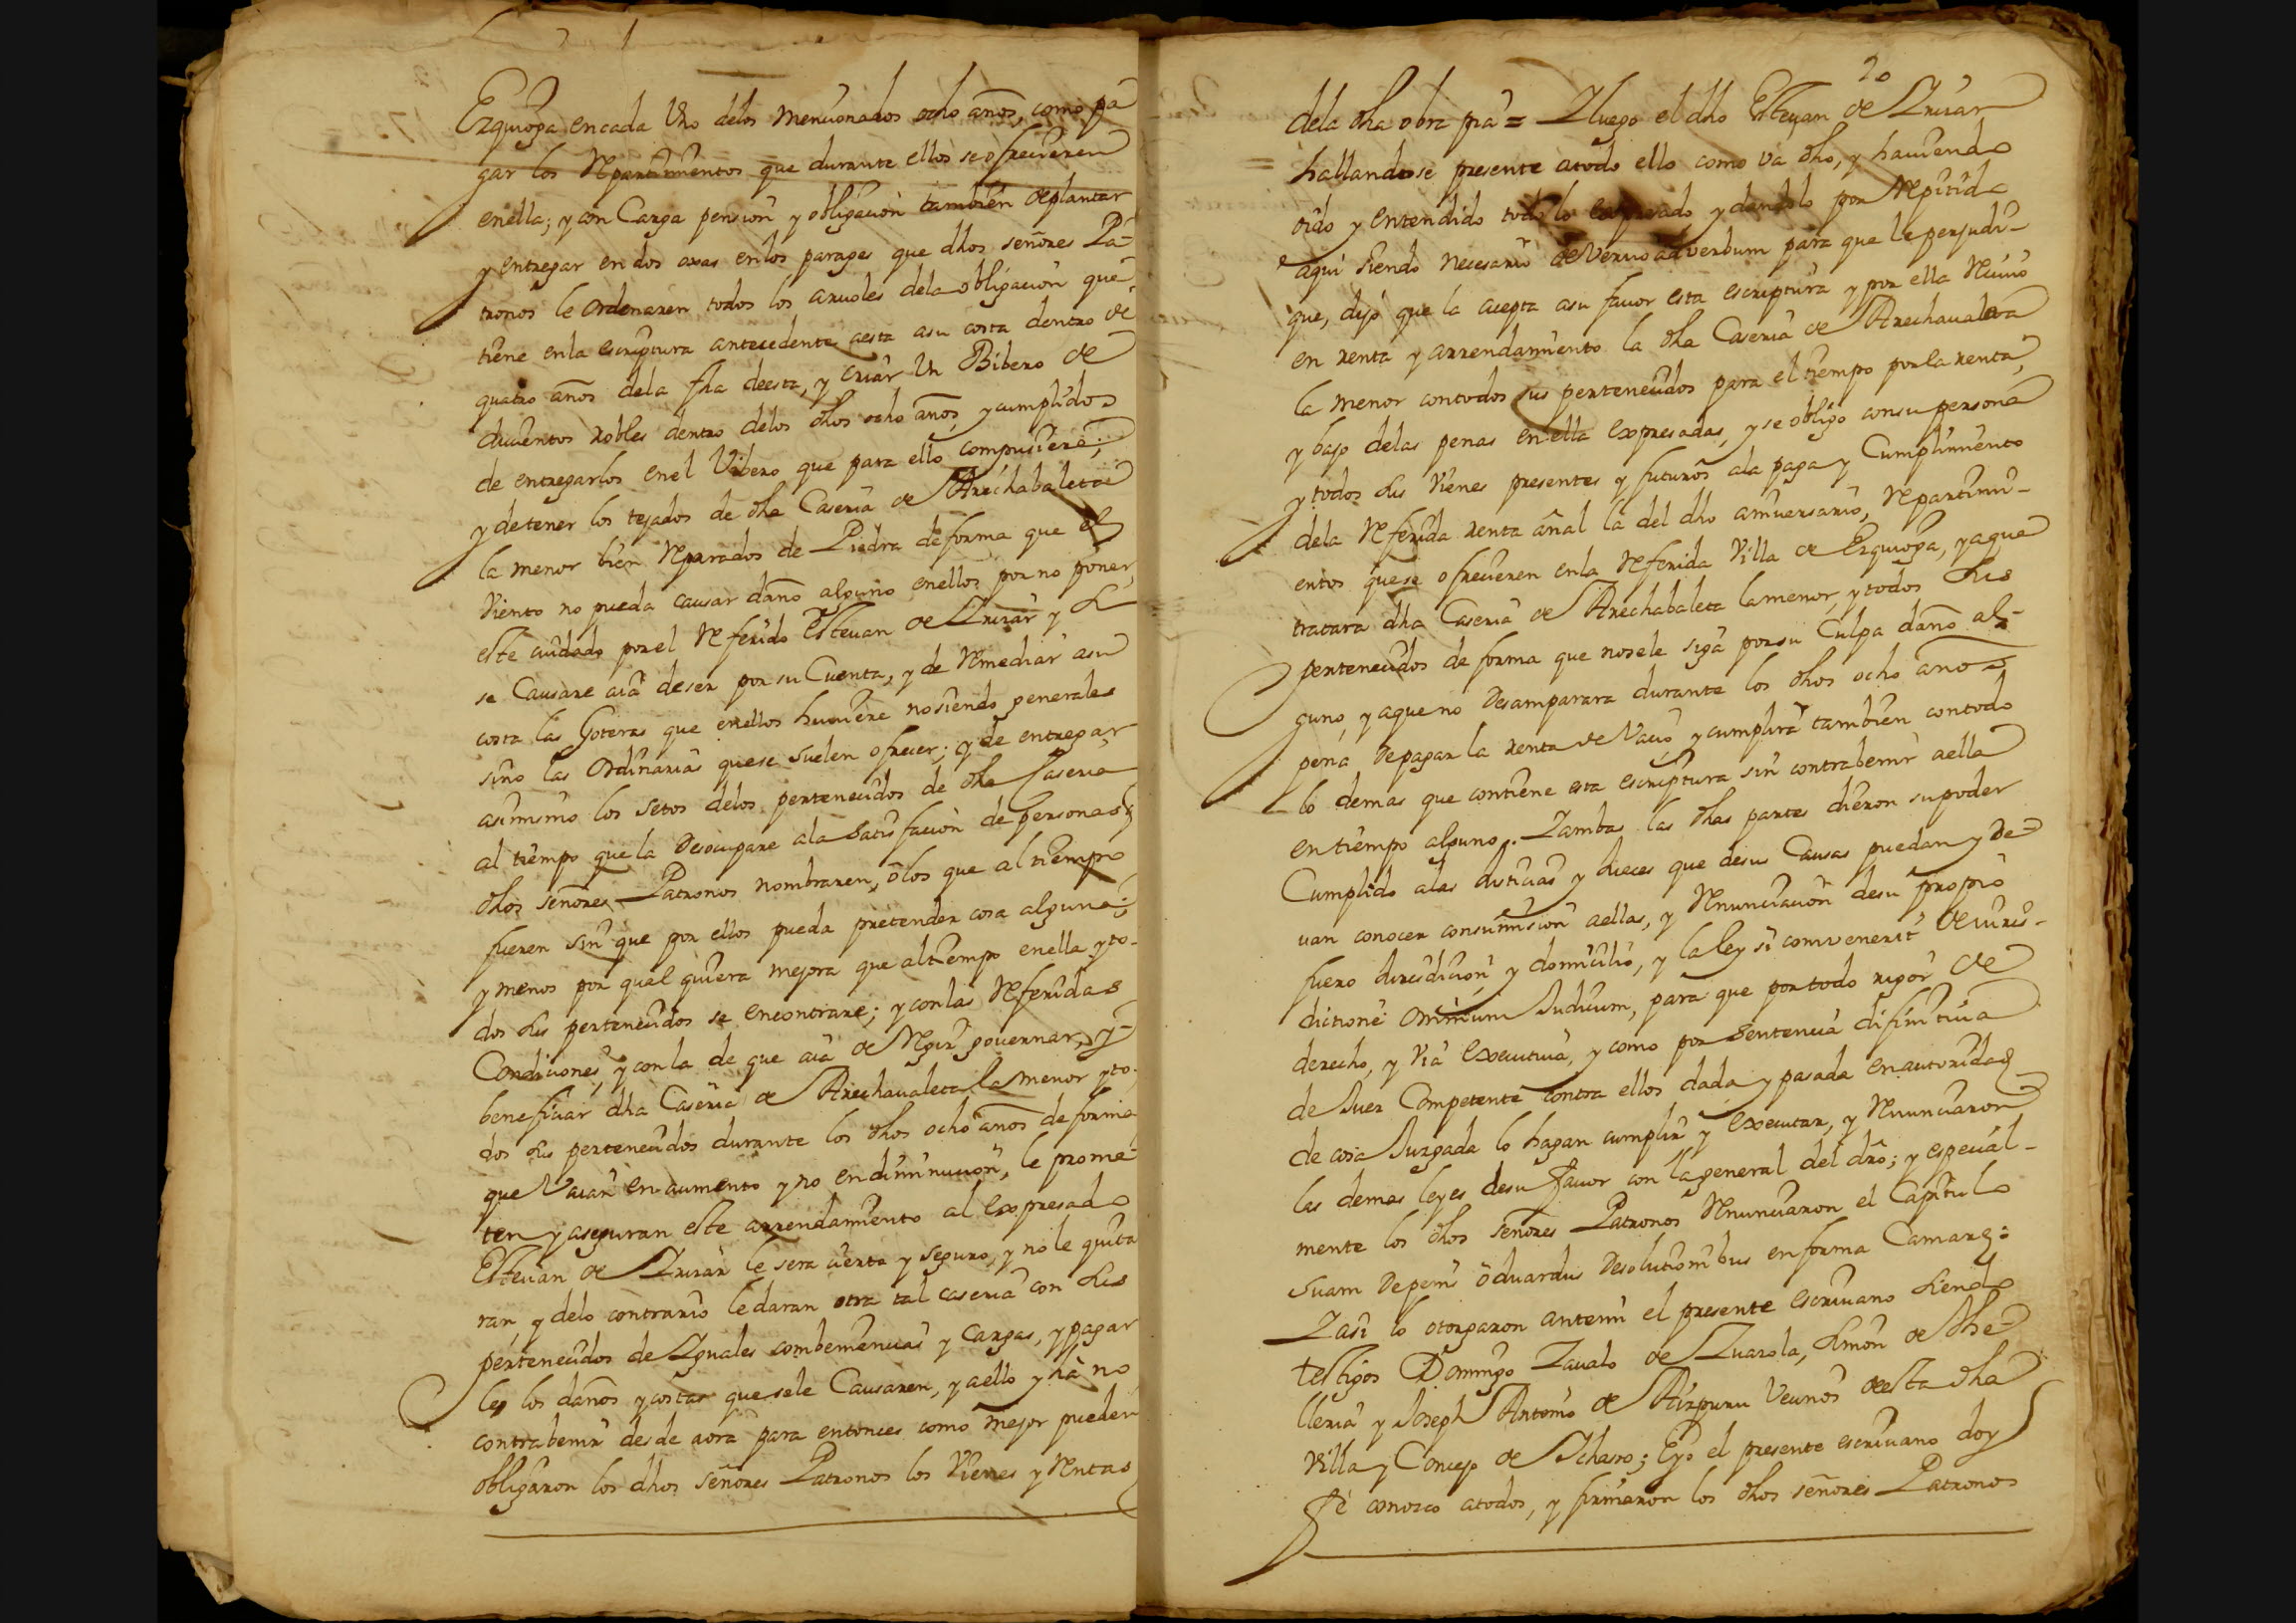 Ezquioga en cada Uno delos mencionados ocho años, como pa
gar los Repartimientos que durante ellos se ofrecieren
enella; y con Carga pension y obligacion tambien de plantar
y entregar en dos oxas en los parages que dhos señores Pa-
tronos le Ordenaren todos los arvoles dela obligacion que
tiene enla escriptura antecedente aesta asu costa dentro de
quatro años dela fha deesta, y criar Un Bibero de
ducientos robles dentro delos dhos ocho años, y cumplidos
de entregarlos enel Vibero que para ello compusiere;
y detener los tejados de dha Caseria de Arechabaleta
la menor bien Reparados de Piedra deforma que el
Viento no pueda causar daño alguno enellos por no poner
este cuidado por el Referido Estevan de Irizar y si
se Causare aia deser por su Cuenta, y de Remediar asu
costa las Goteras que enellos huviere nosiendo generales
sino las Ordinarias quese suelen ofrecer; y de entregar
asimismo los setos delos pertenecidos de dha Caseria
al tiempo que la Desocupare ala Satisfacion de personas q
dhos señores Patronos nombraren, ô los que al tiempo
fueren sin que por ellos pueda pretender cosa alguna;
y menos por qual quiera mejora que altiempo enella y to-
dos sus pertenecidos se encontrare; y con las Referidas
Condiciones, y con la de que aia de Regir governar, y
beneficiar dha Caseria de Arechavaleta la menor y to-
dos sus pertenecidos durante los dhos ocho años de forma
que Vaian en aumento y no en diminucion, le prome-
ten y aseguran este arrendamiento al expresado
Estevan de Irizar le sera cierto y seguro, y no le quita
ran, y delo contrario le daran otra tal caseria con sus
pertenecidos de Iguales combeniencias y Cargas, y pagar
les los daños y costas que sele Causaren, y aello y ha no
contrabenir desde aora para entonces como mejor pueden
obligaron los dhos señores Patronos los Vienes y Rentas
20
dela dha obra pia = I luego el dho Estevan de Irizar
hallandose presente atodo ello como va dho, y haviendo
oido y entendido todo lo expresado y dandolo por Repitido
aqui siendo necesario de Vervo ad verbum para que le perjudi-
que, dijo que la acepta asu favor esta escriptura y por ella Recivio
en renta y arrendamiento la dha Caseria de Arechavaleta
la menor contodos sus pertenecidos para el tiempo por la renta,
y bajo delas penas en ella expresadas, y se obligo consu persona
y todos sus Vienes presentes y futuros ala paga y Cumplimiento
dela Referida renta añal la del dho aniversario, Repartimi-
entos quese ofrecieren enla Referida Villa de Ezquioga, y aque
tratara dha Caseria de Arechabaleta lamenor, y todos sus
pertenecidos de forma que nosele siga porsu Culpa daño al-
guno, y aque no Desamparara durante los dhos ocho años
pena Depagar la renta de Vacio, y cumplira tambien contodo
lo demas que contiene esta escriptura sin contrabenir aella
en tiempo alguno. I ambas las dhas partes dieron su poder
Cumplido alas Justicias y Jueces que desus Causas puedan y De-
van conocer consumision aellas, y Renunciacion desu propio
fuero Jurisdicion, y domicilio, y la ley si combenerit de iuris-
dictione Omnium Judicum, para que por todo rigor de
derecho, y Via executiva, y como por Sentencia difinitiva
de Juez Competente contra ellos dada y pasada en autoridad
de cosa Juzgada lo hagan cumplir y executar, y Renunciaron
las demas leyes desu favor con la general del dro; y especial-
mente los dhos señores Patronos Renunciaron el Capitulo
Suam Depenis öduardus Desolutionibus en forma Camare:
I asi lo otorgaron antemi el presente escrivano siendo
testigos Domingo Zavalo de Zuazola, Simon de Athe-
lleria y Joseph Antonio de Aizpuru Vecinos deesta dha
Villa y Concejo de Ichaso; Eyo el presente escrivano doy
fe conozco atodos, y firmaron los dhos señores Patronos